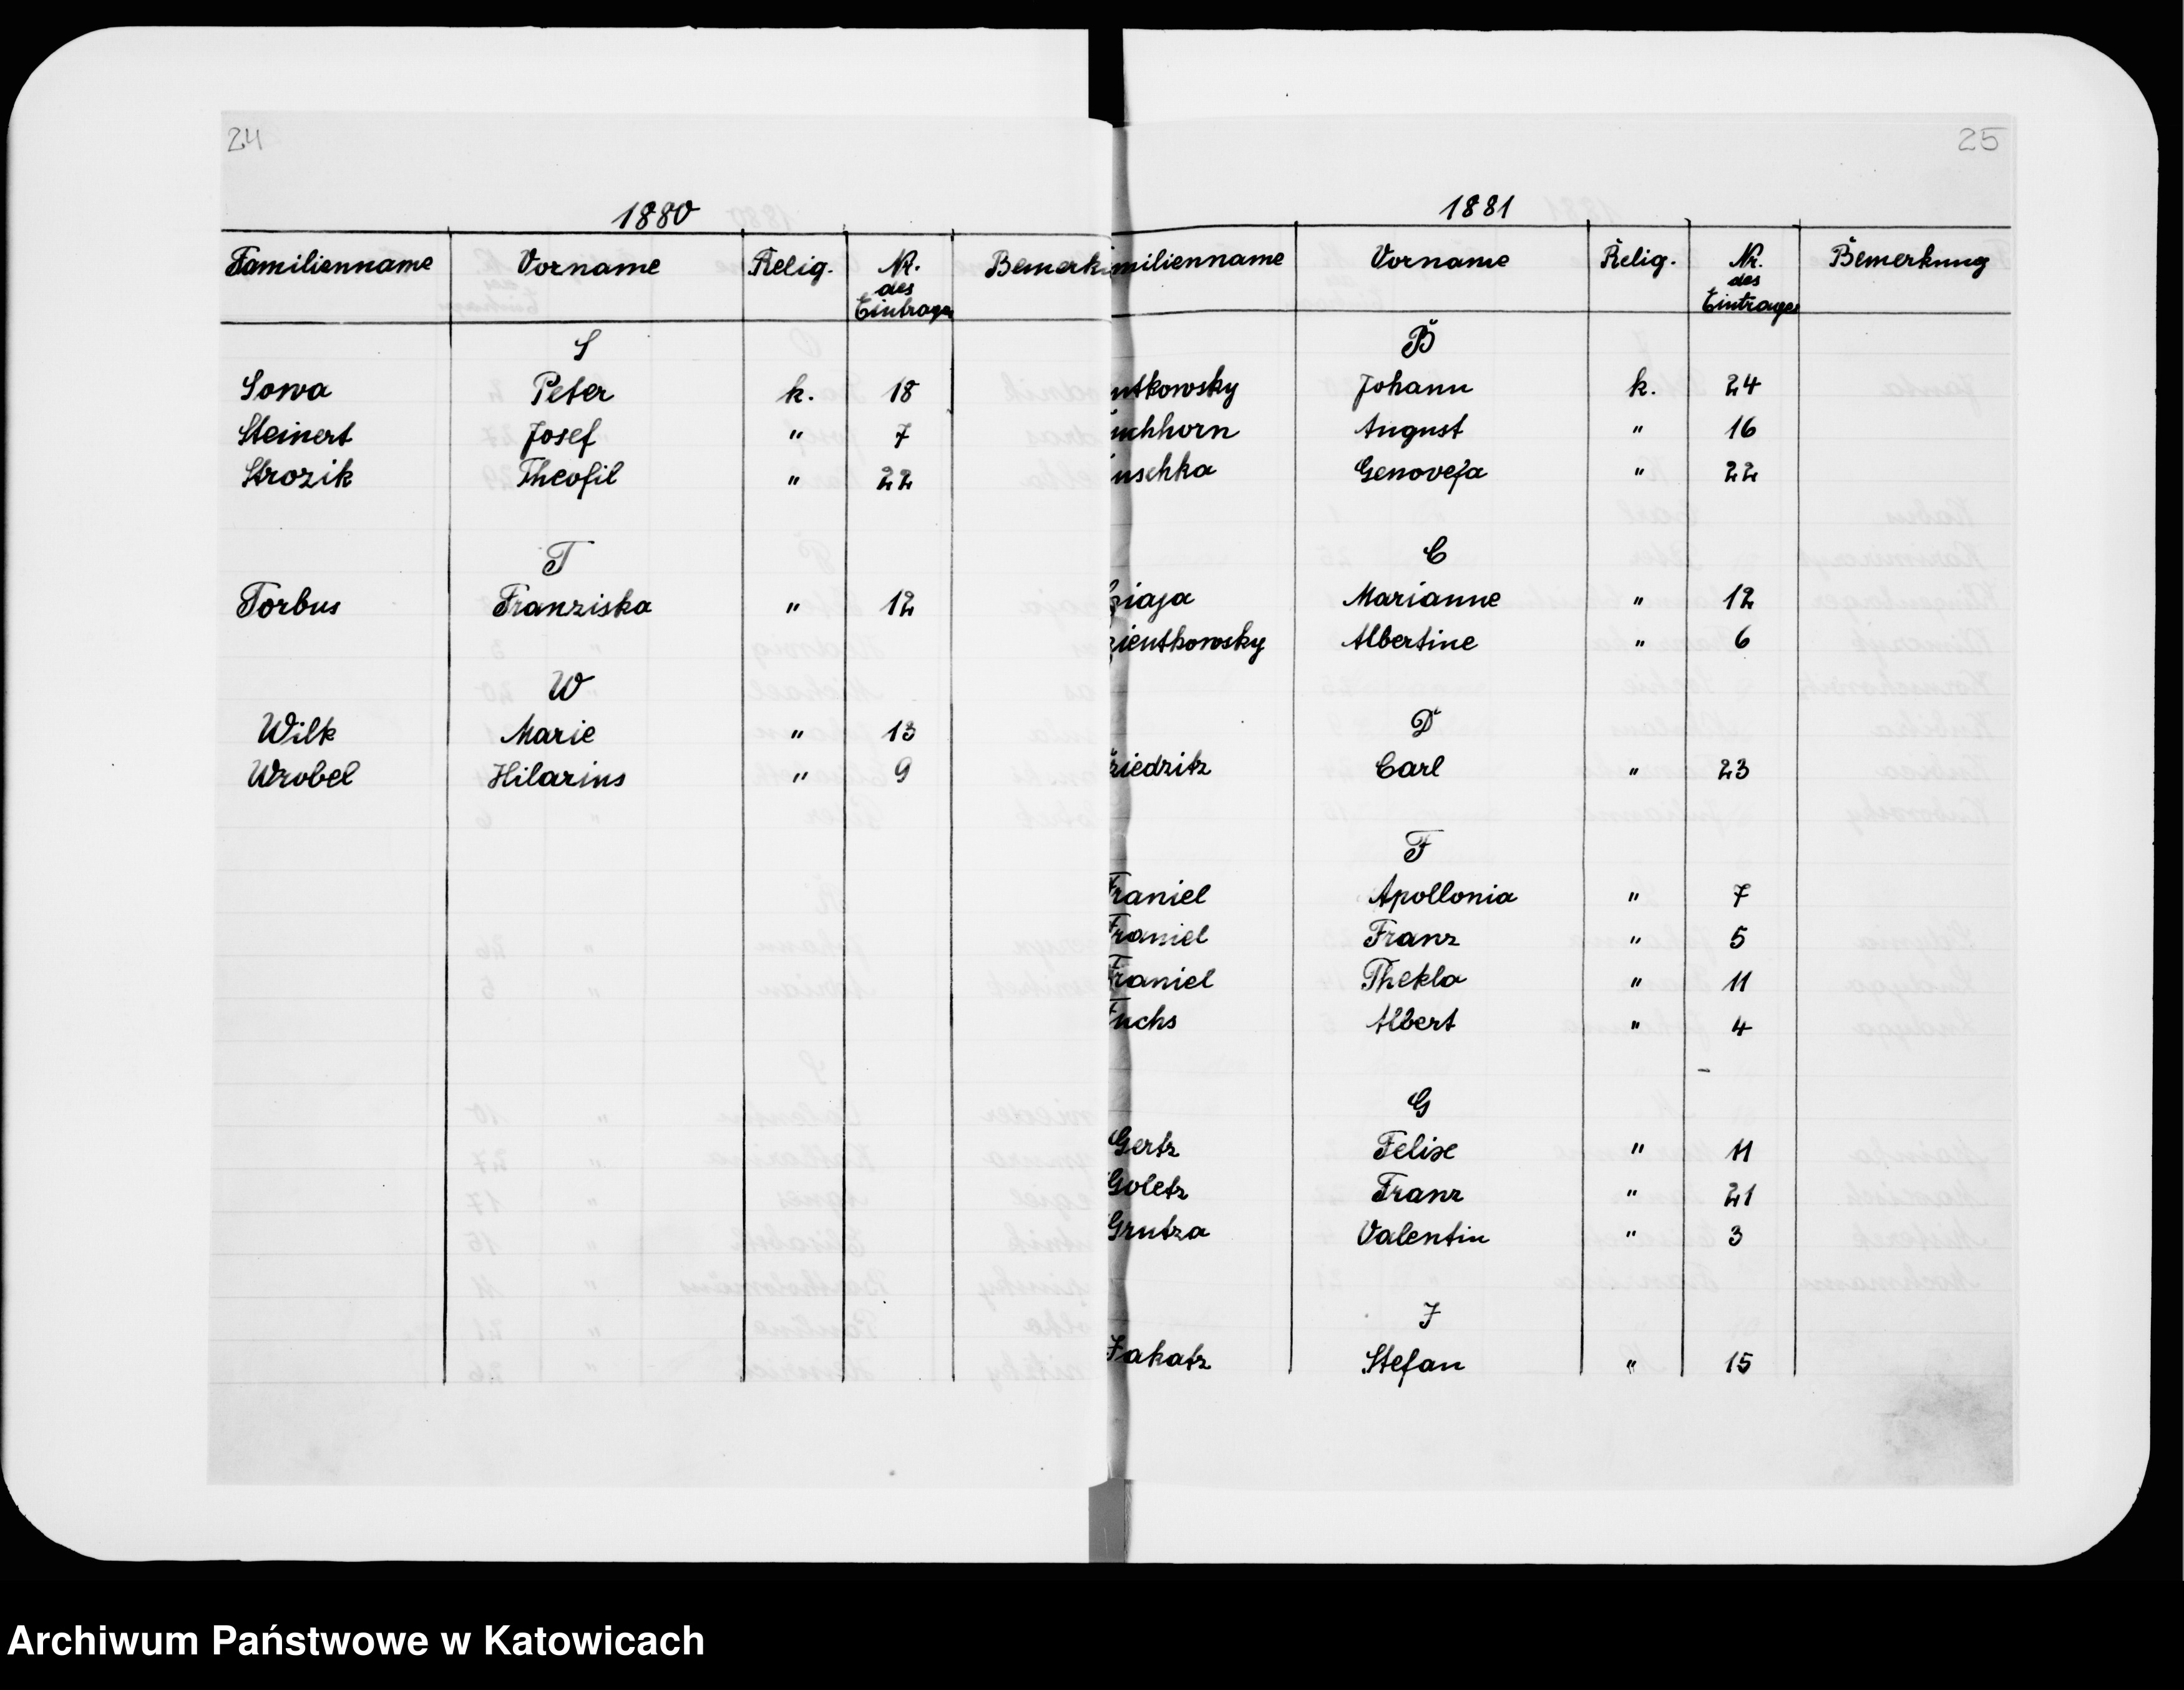 24
1880
Familienname Vorname Relig. Nr. des Eintrages Bemerk
S
Sowa Peter k. 18
Steinert Josef " 7
Strozik Theofil " 22
T
Torbus Franziska " 12
W
Wilk Marie " 13
Wrobel Hilarius " 9
25
1881
milienname Vorname Relig. Nr. des Eintrages Bemerkung
B
ntkowsky Johann k. 24
chhorn August " 16
uschka Genovefa " 22
C
ziaja Marianne " 12
zientkowsky Albertine " 6
D
ziedzitz Carl " 23
F
Franiel Apollonia " 7
Franiel Franz " 5
Franiel Thekla " 11
Fuchs Albert " 4
G
Gertz Felix " 11
Goletz Franz " 21
Grutza Valentin " 3
J
Jakatz Stefan " 15
Archiwum Państwowe w Katowicach